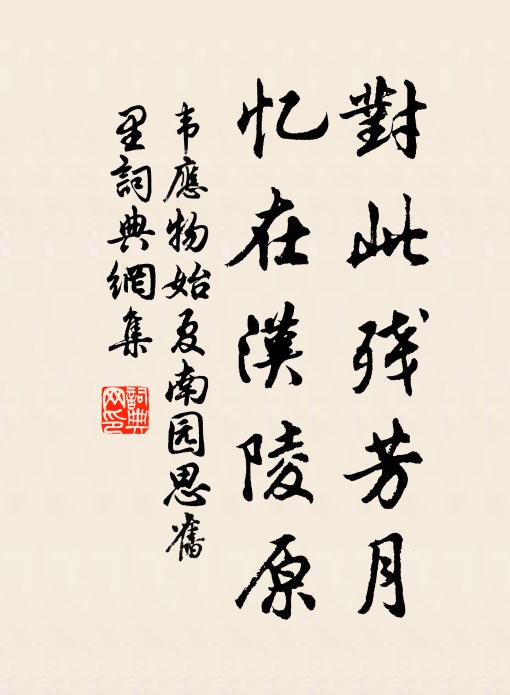 對此残芳月
忆在漢陵原
韦應物始夏南园思舊
里詞典網集
詞典
网印